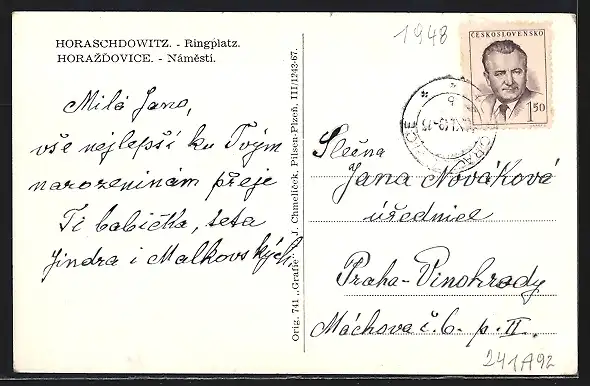 HORASCHDOWITZ. - Ringplatz.
HORAŽĎOVICE. - Náměstí.
Milá Jano,
vše nejlepší ku Tvým
narozeninám přeje
Ti babička, teta
Jindra i Malkovských.
Orig. 741 „Grafie" J. Chmelíček, Pilsen-Plzeň, III/1243-67.
1948
ČESKOSLOVENSKO
1 50
Slečna
Jana Nováková
úřednice
Praha-Vinohrady
Máchova č. 6. p. II.
241A92